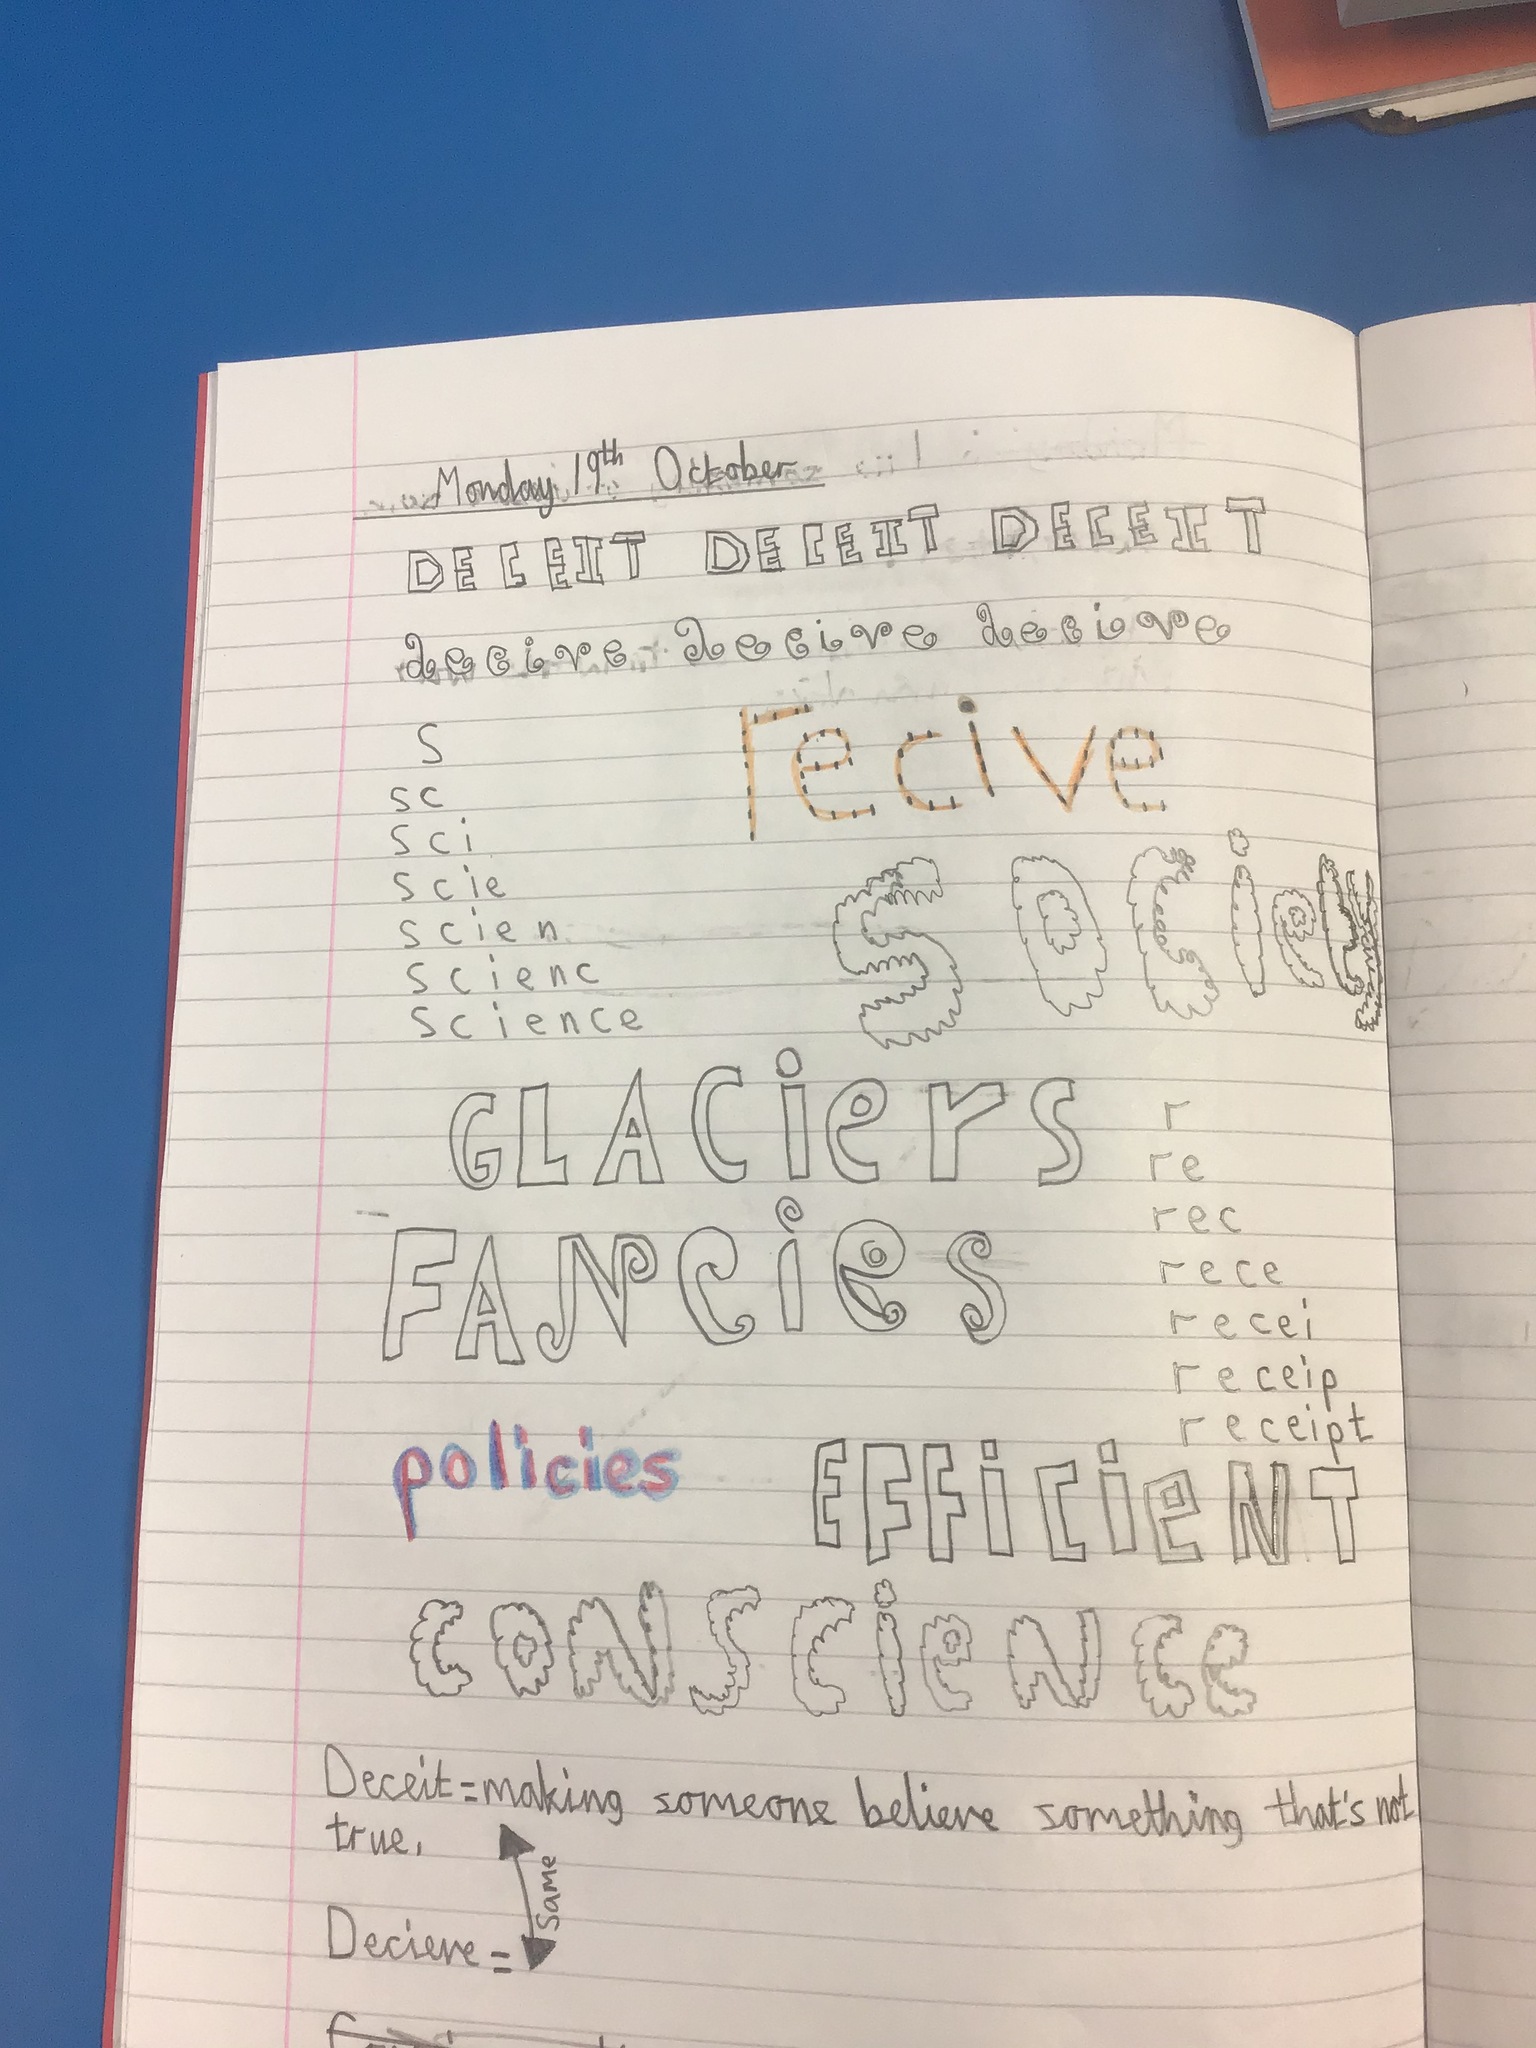 Monday 19th October
DECEIT DECEIT DECEIT
decive decive decive
s
sc
sci
scie
scien
scienc
science
recive
GLACiers
FANCies
r
re
rec
rece
recei
receip
receipt
policies
EFFiCieNT
CONSCieNce
Deceit = making someone believe something that's not
true.
same
Decieve =